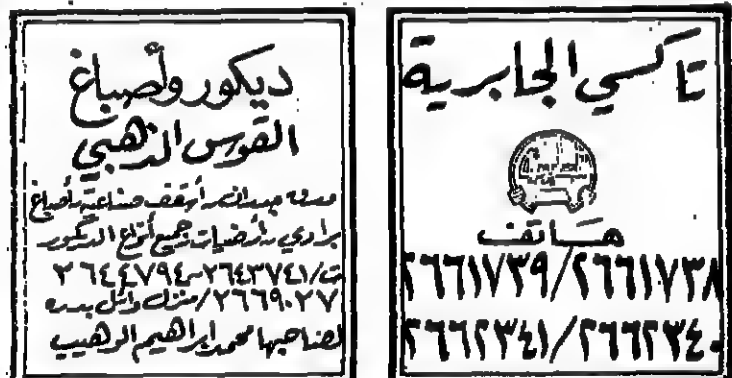 تاكسي الجابرية
هاتف
٢٦٦١٧٣٩/٢٦٦١٧٣٨
٢٦٦٢٣٤١/٢٦٦٢٣٤٠
ديكور وأصباغ
القوس الذهبي
ورق جدران أسقف صناعية وأصباغ
برادي وأرضيات وجميع أنواع الديكور
ت/٢٦٤٣٧٤١-٢٦٤٤٧٩٤
٢٦٦٩٠٢٧/منزل وائل بدر
لصاحبها محمد ابراهيم الوهيب